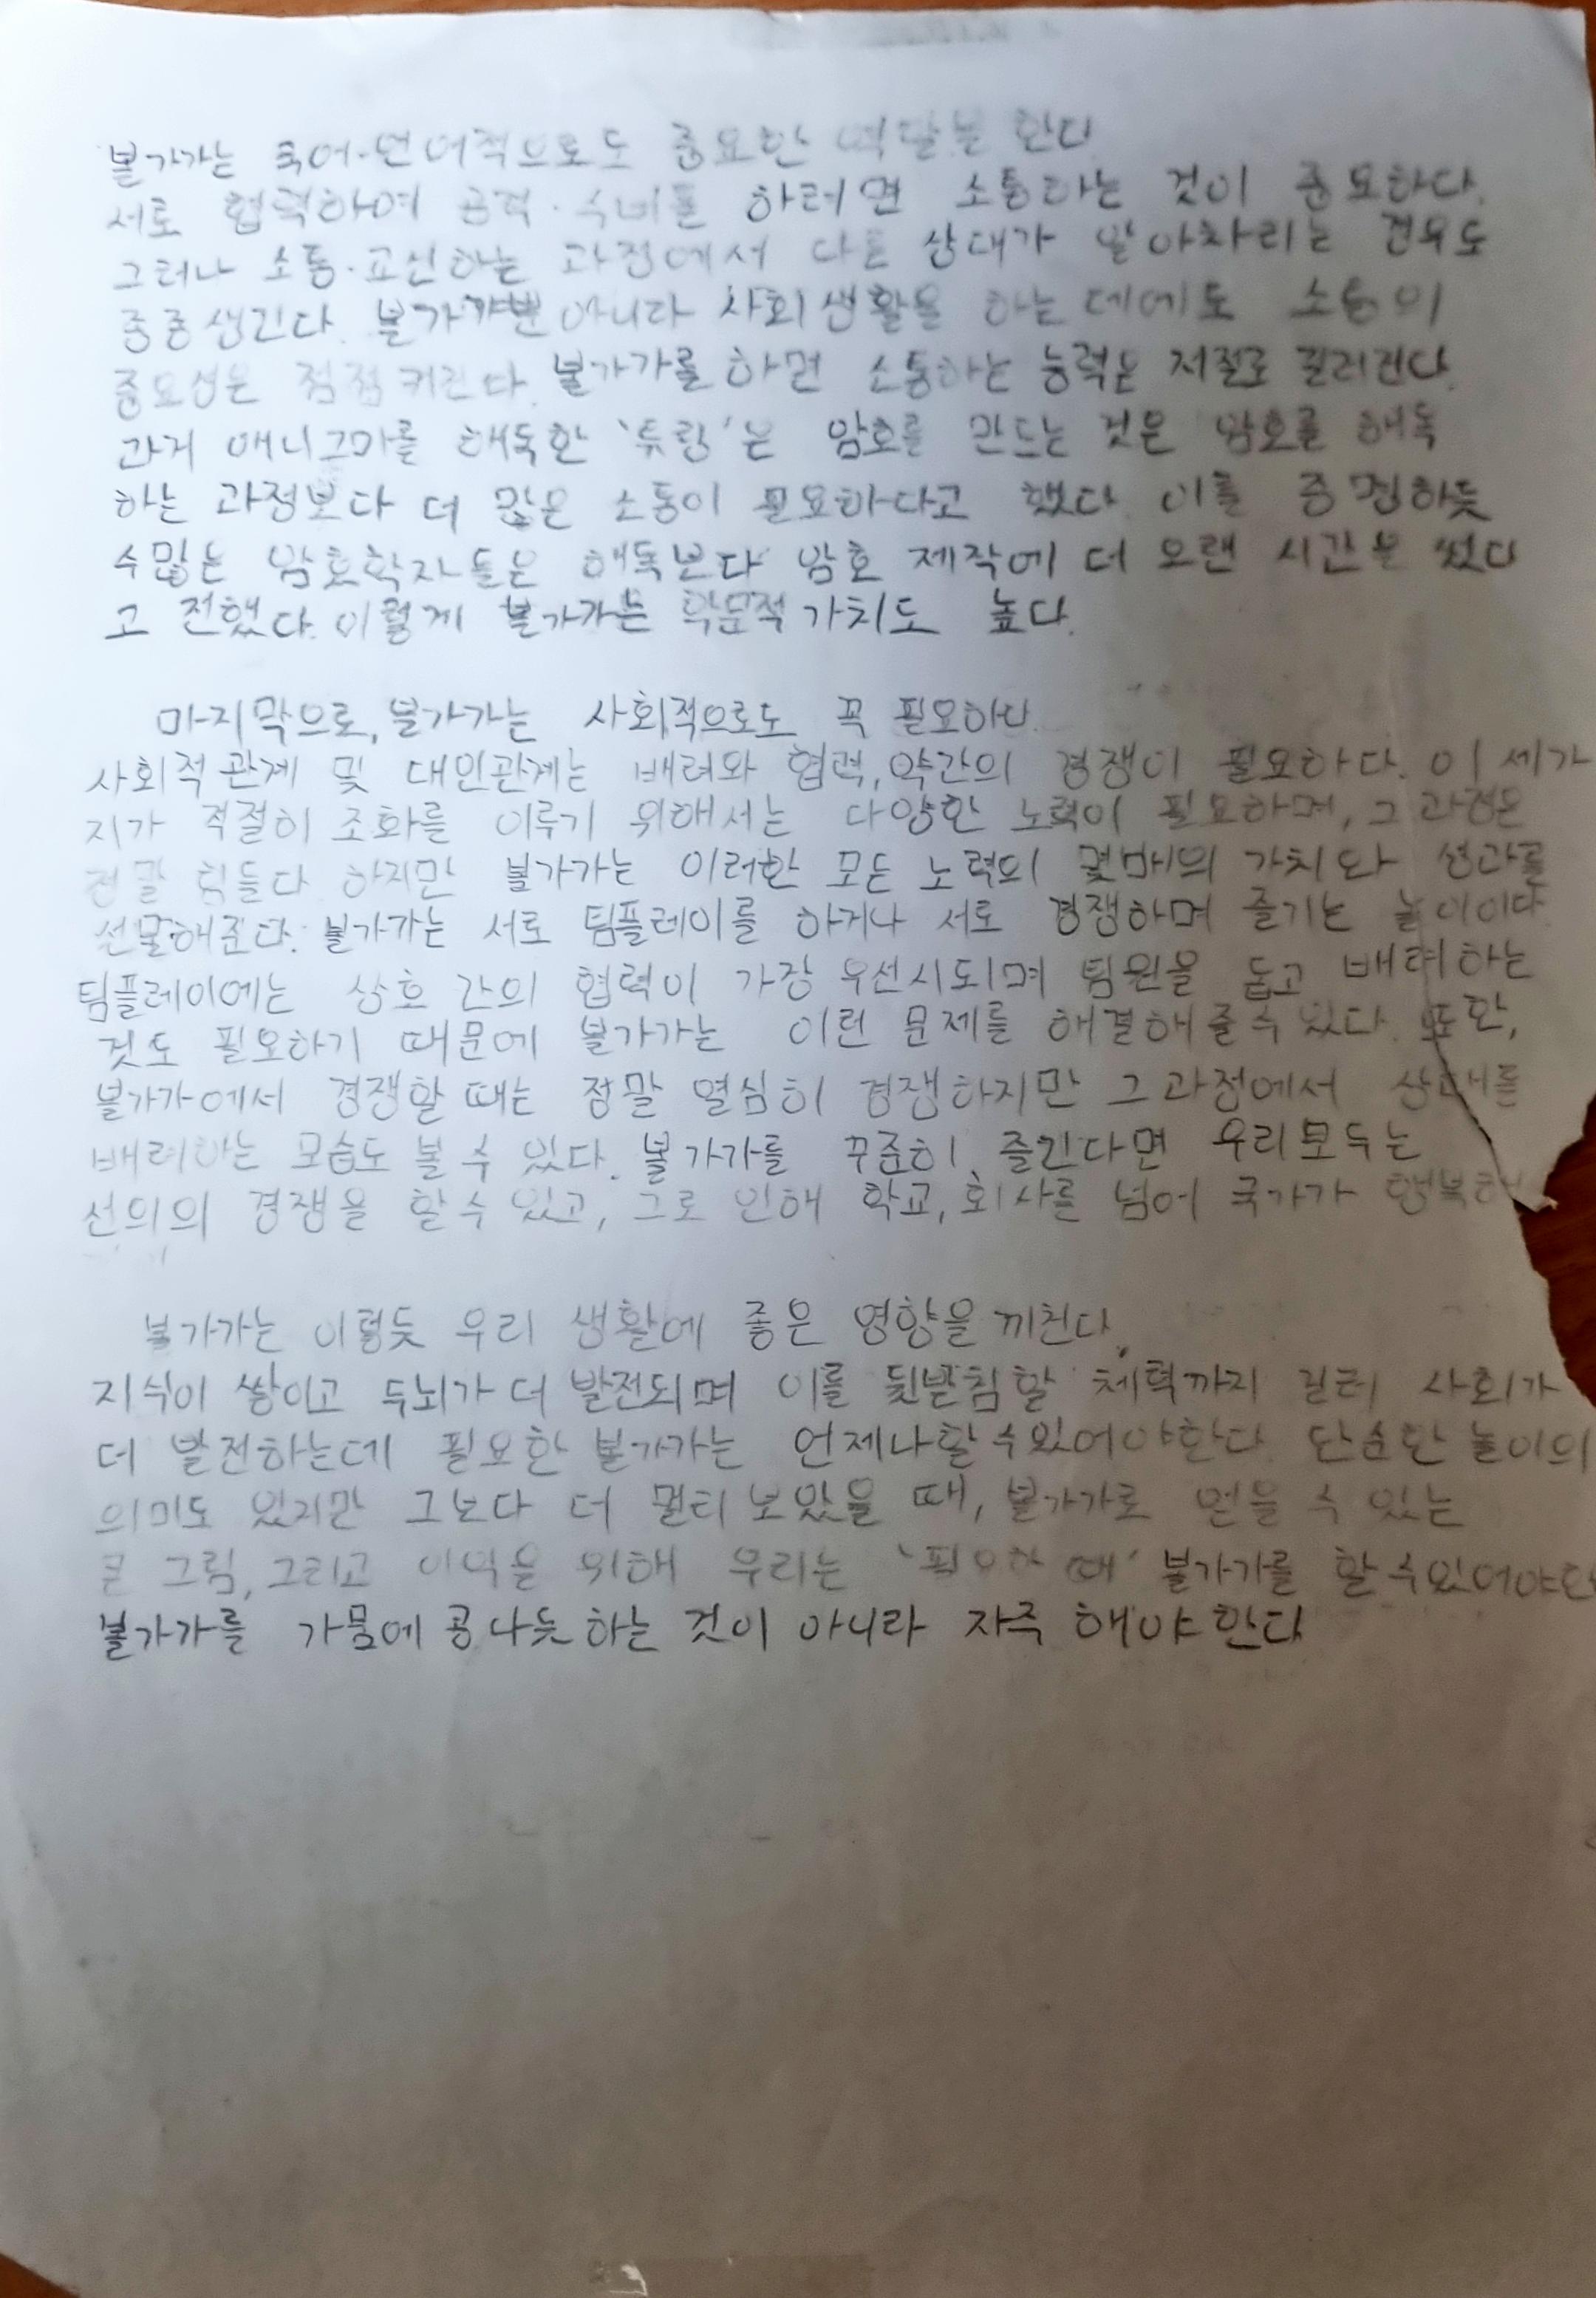 불가가는 국어·언어적으로도 중요한 역할을 한다
서로 협력하여 공격·수비를 하려면 소통하는 것이 중요하다.
그러나 소통·교신하는 과정에서 다른 상대가 알아차리는 경우도
종종 생긴다. 불가가뿐 아니라 사회생활을 하는데에도 소통의
중요성은 점점 커진다. 불가가를 하면 소통하는 능력은 저절로 길러진다.
과거 애니그마를 해독한 '튜링'은 암호를 만드는 것은 암호를 해독
하는 과정보다 더 많은 소통이 필요하다고 했다. 이를 증명하듯
수많은 암호학자들은 해독보다 암호 제작에 더 오랜 시간을 썼다
고 전했다. 이렇게 불가가는 학문적 가치도 높다.
마지막으로, 불가가는 사회적으로도 꼭 필요하다
사회적 관계 및 대인관계는 배려와 협력, 약간의 경쟁이 필요하다. 이 세가
지가 적절히 조화를 이루기 위해서는 다양한 노력이 필요하며, 그 과정은
정말 힘들다 하지만 불가가는 이러한 모든 노력의 몇배의 가치와 성과를
선물해준다. 불가가는 서로 팀플레이를 하거나 서로 경쟁하며 즐기는 놀이이다
팀플레이에는 상호 간의 협력이 가장 우선시되며 팀원을 돕고 배려하는
것도 필요하기 때문에 불가가는 이런 문제를 해결해줄수 있다. 또한,
불가가에서 경쟁할 때는 정말 열심히 경쟁하지만 그 과정에서 상대를
배려하는 모습도 볼 수 있다. 불가가를 꾸준히 즐긴다면 우리모두는
선의의 경쟁을 할수 있고, 그로 인해 학교, 회사를 넘어 국가가
불가가는 이렇듯 우리 생활에 좋은 영향을 끼친다.
지식이 쌓이고 두뇌가 더 발전되며 이를 뒷받침할 체력까지 길러 사회가
더 발전하는데 필요한 불가가는 언제나할수있어야한다 단순한 놀이의
의미도 있지만 그보다 더 멀리 보았을 때, 불가가로 얻을 수 있는
큰 그림, 그리고 이익을 위해 우리는 '필요할 때' 불가가를 할수있어야
불가가를 가뭄에 콩나듯 하는 것이 아니라 자주 해야 한다